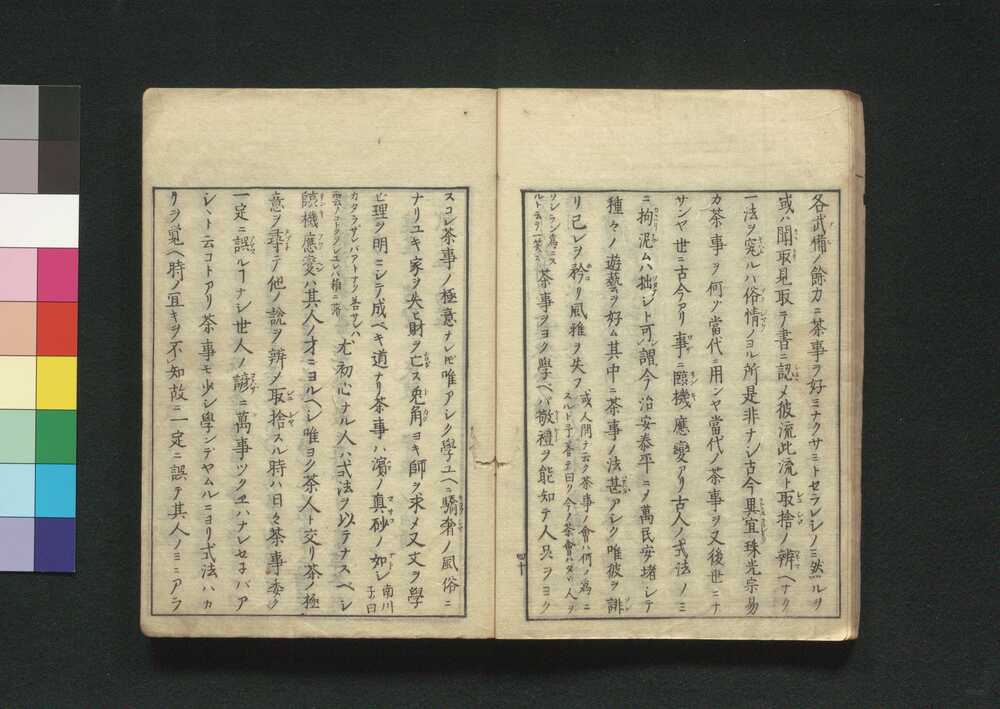 各武備ノ餘力ニ茶事ヲ好ミナクサミトセラレシノミ然ルヲ
或ハ聞取見取テ書ニ認メ彼流此流ト取捨ノ辨ヘナク
一法ヲ究ルハ俗情ノヨル所是非ナシ古今異宜珠光宗易
カ茶事ヲ何ソ當代ニ用ンヤ當代ノ茶事ヲ又後世ニナ
サンヤ世ニ古今アリ事ニ臨機應変アリ古人ノ式法ノミ
ニ拘泥ムハ拙シト可謂今治安泰平ニノ萬民安堵シテ
種々ノ遊藝ヲ好ム其中ニ茶事ノ法甚アシク唯彼ヲ誹
リ已レヲ矜リ風雅ヲ失フ
或人問テ云ク茶事ノ會ハ何ノ為ニ
スルト予答テ曰リ今ノ茶會ハ人ヲ
ソシラン為ニス
ルト云ヲ一笑ス
茶事ヲヨク學ベバ敬禮ヲ能知テ人品ヲヨク
四十
スコレ茶事ノ極意ナレ𪜈唯アシク學ユヘニ驕奢ノ風俗ニ
ナリユキ家ヲ失ヒ財ヲ亡ス兎角ヨキ師ヲ求メ又文ヲ學
ビ理ヲ明ニシテ成ベキ道ナリ茶事ハ濱ノ真砂ノ如シ
南川
子曰
カタラザレバアトナシ若サレハ
尤初心ナル人ハ式法ヲ以テナスベシ
臨機應変ハ其人ノ才ニヨルヘシ唯ヨク茶人ト交リ茶ノ極
意ヲ尋テ他ノ說ヲ辨メ取捨スル時ハ日々茶事委ク
一定ニ誤ルヿナシ世人ノ諺ニ萬事ツクヱハナレセネバア
シヽト云コトアリ茶事モ少シ學ンデヤムルニヨリ式法ハカ
リヲ覚ヘ時ノ宜キヲ不知故ニ一定ニ誤テ其人ノミニアラ